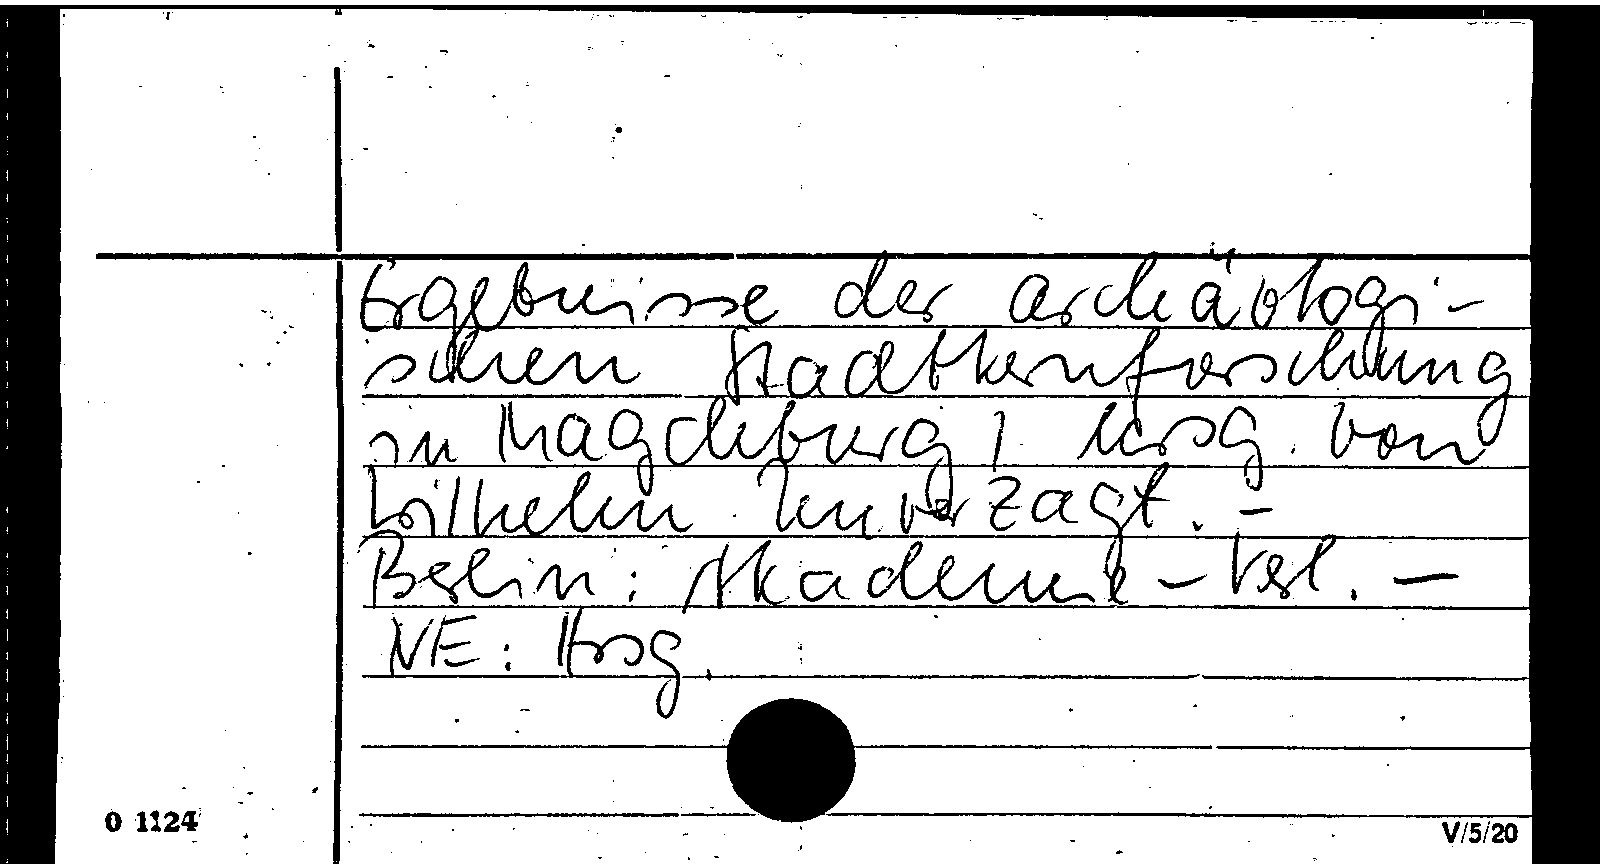 Ergebnisse der archäologi-
schen Stadtkernforschung
in Magdeburg / hrsg. von
Wilhelm Unverzagt. -
Berlin: Akademie-Verl. -
NE: Hrsg.
0 1124
V/5/20